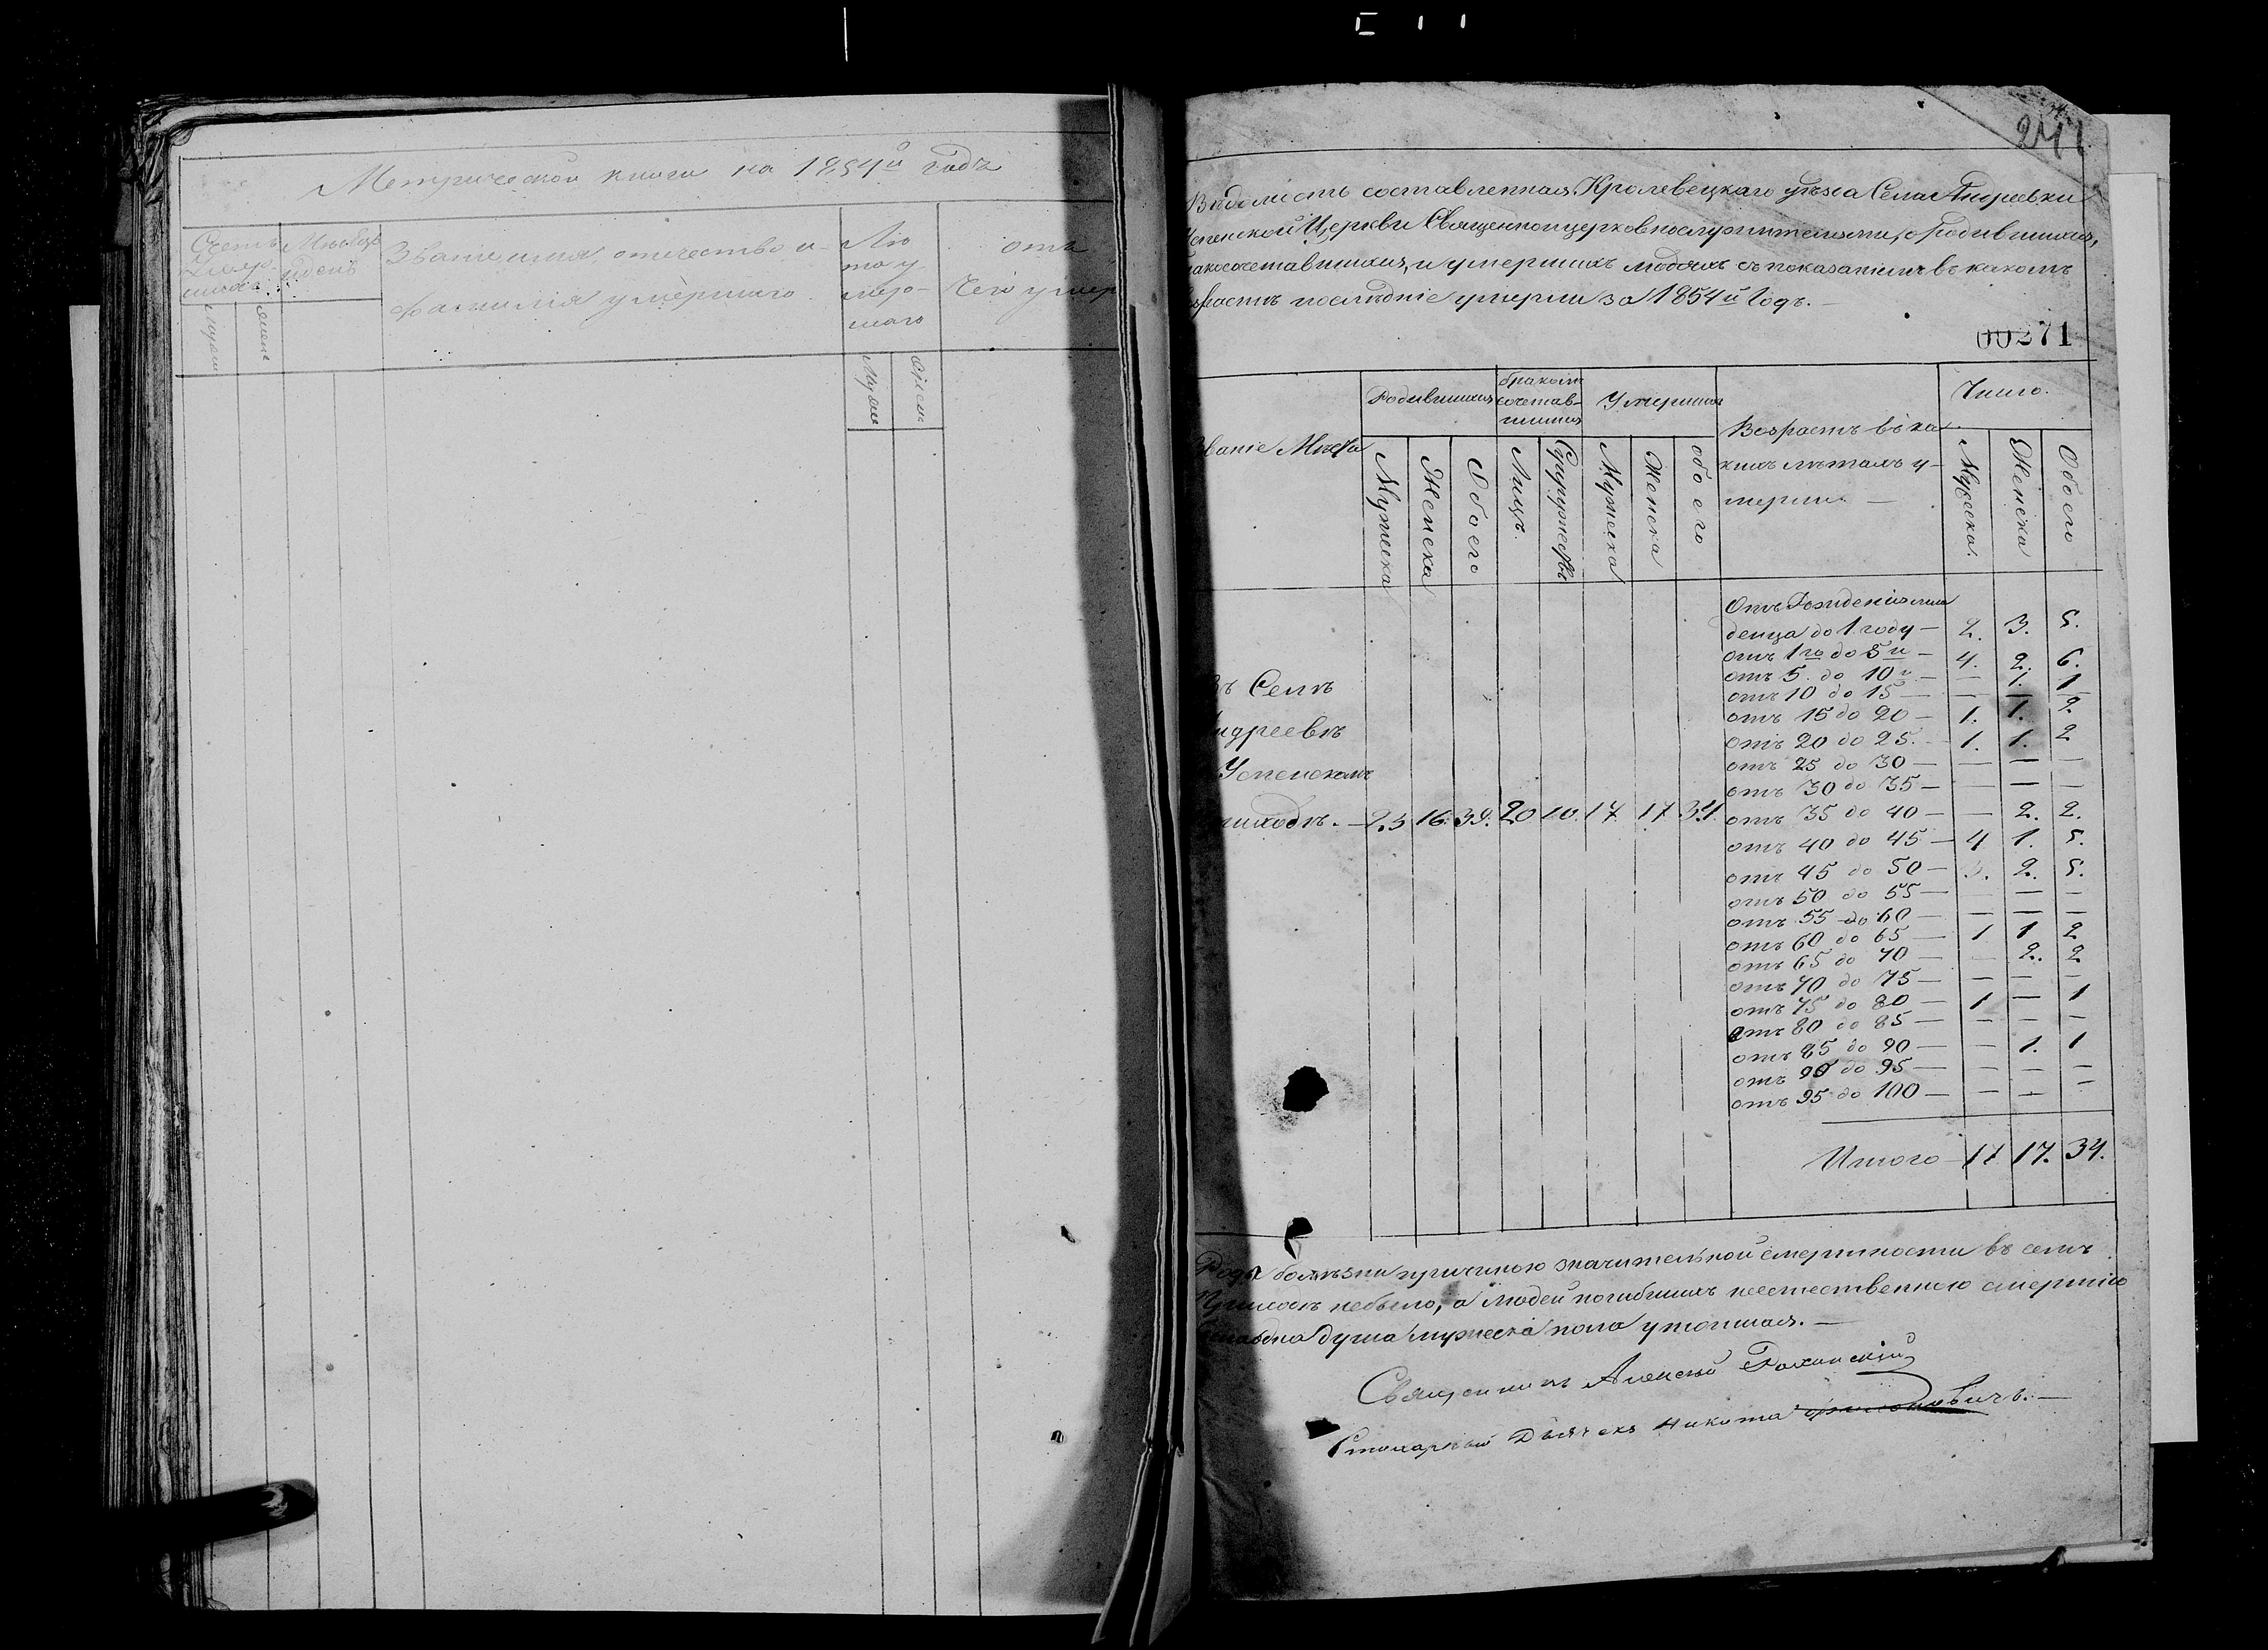 Метрической книги на 1854й годъ
Счетъ умершихъ
Мужеска
Женска
Мѣсяцъ и день
Званіе имя отчество и
фамилія умершаго
Лѣта умершаго
Мужеск
Женска
отъ
чего умер
241
Вѣдомость составленная Кролевецкаго уѣзда Села Андреевки
Успенской Церкви Священноцерковнослужителями, о родившихся,
бракосочетавшихся, и умершихъ людяхъ съ показаніемъ въ какомъ
возрастѣ послѣдніе умерли за 1854й Годъ. —
00271
Званіе Мѣста
Родившихся
Мужеска
Женска
Обоего
бракомъ сочетавшихся
Лицъ
Супружествъ
Умерших
Мужеска
Женска
обоего
Возрастъ въ ка
кихъ лѣтахъ у-
мерли —
Число.
Мужеска.
Женска
Обоего
Отъ Рожденія мла
денца до 1 году — 2. 3. 5.
отъ 1го до 5и — 4. 2. 6.
отъ 5. до 10и — — 1. 1
отъ 10 до 15 — — — —
отъ 15 до 20 — 1. 1. 2.
отъ 20 до 25. — 1. 1. 2
отъ 25 до 30 — — — —
отъ 30 до 35 — — — —
отъ 35 до 40 — — 2. 2.
отъ 40 до 45 — 4 1. 5.
отъ 45 до 50 — 3. 2. 5.
отъ 50 до 55 — — — —
отъ 55 до 60 — — — —
отъ 60 до 65 — 1 1 2
отъ 65 до 70 — — 2. 2
отъ 70 до 75 — — — —
отъ 75 до 80 — 1 — 1
отъ 80 до 85 — — — —
отъ 85 до 90 — — 1. 1
отъ 90 до 95 — — — —
отъ 95 до 100 — — — —
Итого 17 17. 34.
Въ Селѣ
Андреевкѣ
Успенскомъ
приходѣ. — 23 16. 39. 20 10. 17. 17 34.
Рода болѣзни причиною значительной смертности въ семъ
Приходѣ небыло, а людей погибшихъ неестественною смертію
одна душа мужеска пола утопшая. —
Священникъ Алексѣй
Дьячекъ Никита